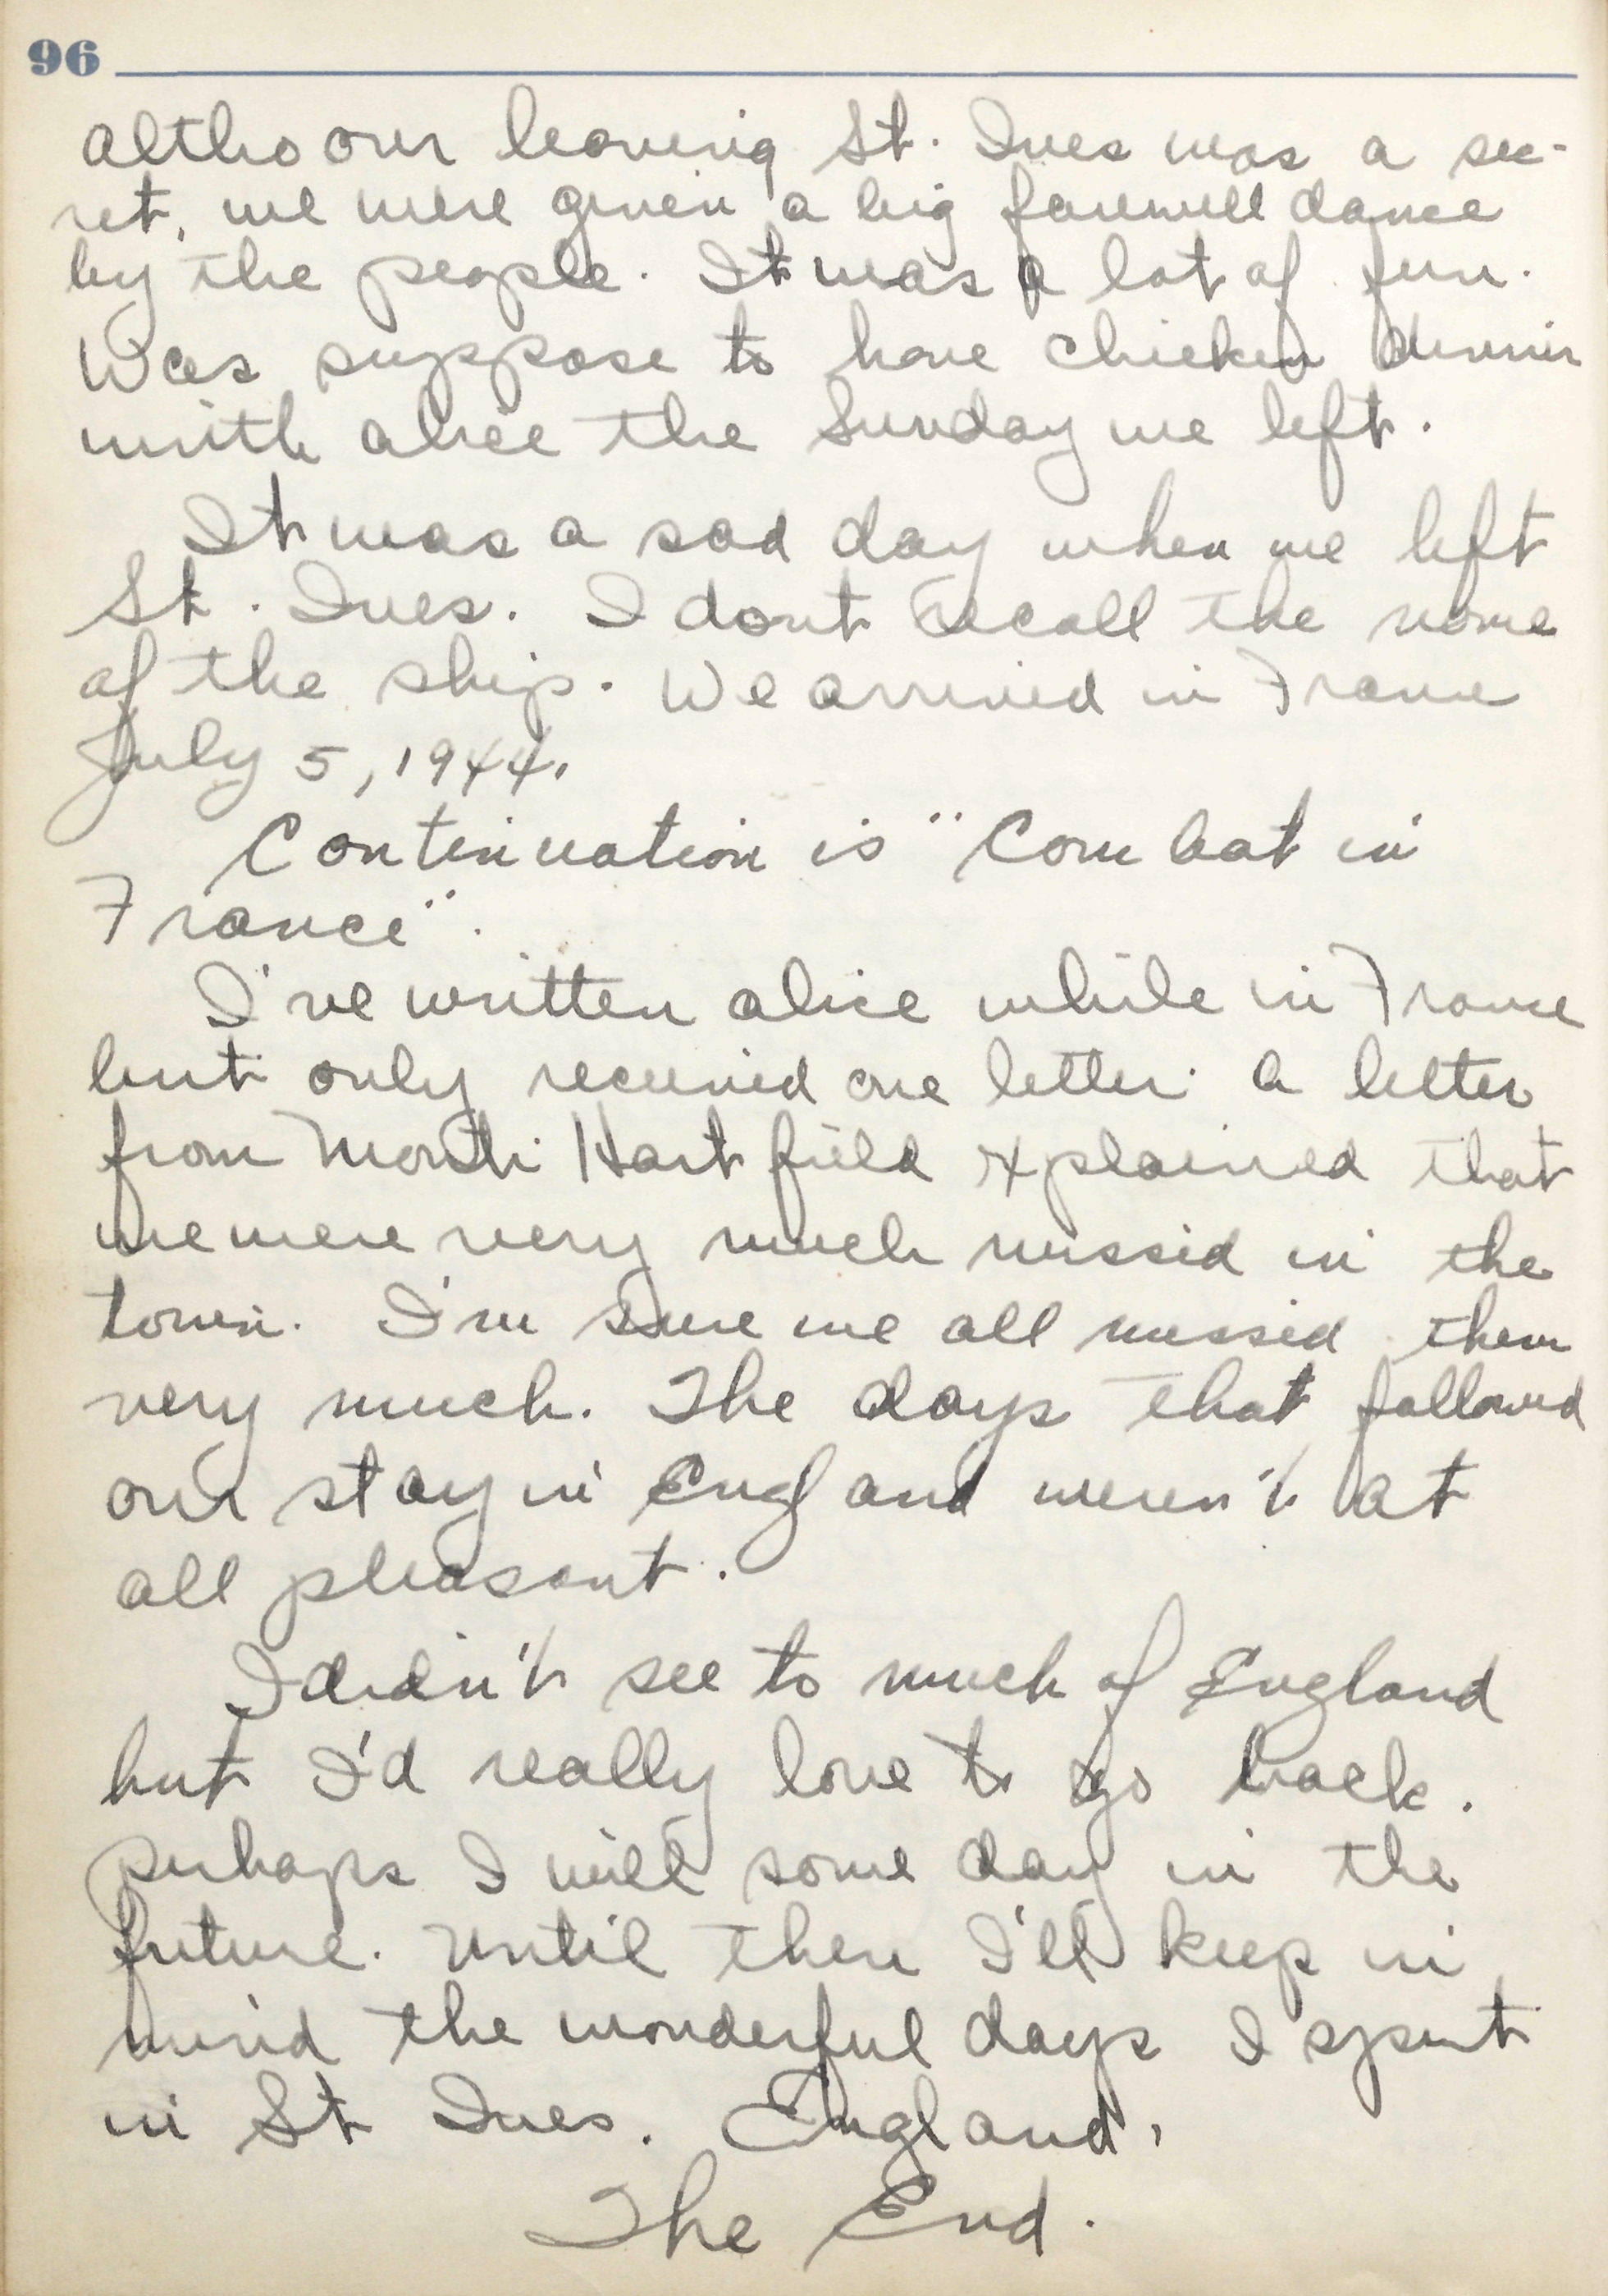 96
altho our leaving St. Ives was a sec-
ret, we were given a big farewell dance
by the people. It was a lot of fun.
Was suppose to have chicken dinner
with alice the Sunday we left.
It was a sad day when we left
St. Ives. I dont recall the name
of the ship. We arrived in France
July 5, 1944.
Continuation is "Combat in
France".
I've written alice while in France
but only received one letter. a letter
from Hartfield xplained that
we were very much missed in the
town. I'm sure we all missed them
very much. The days that followed
our stay in England weren't at
all pleasant.
I didn't see to much of England
but I'd really love to go back.
Perhaps I will some day in the
future. Until then I'll keep in
mind the wonderful days I spent
in St Ives. England.
The End.